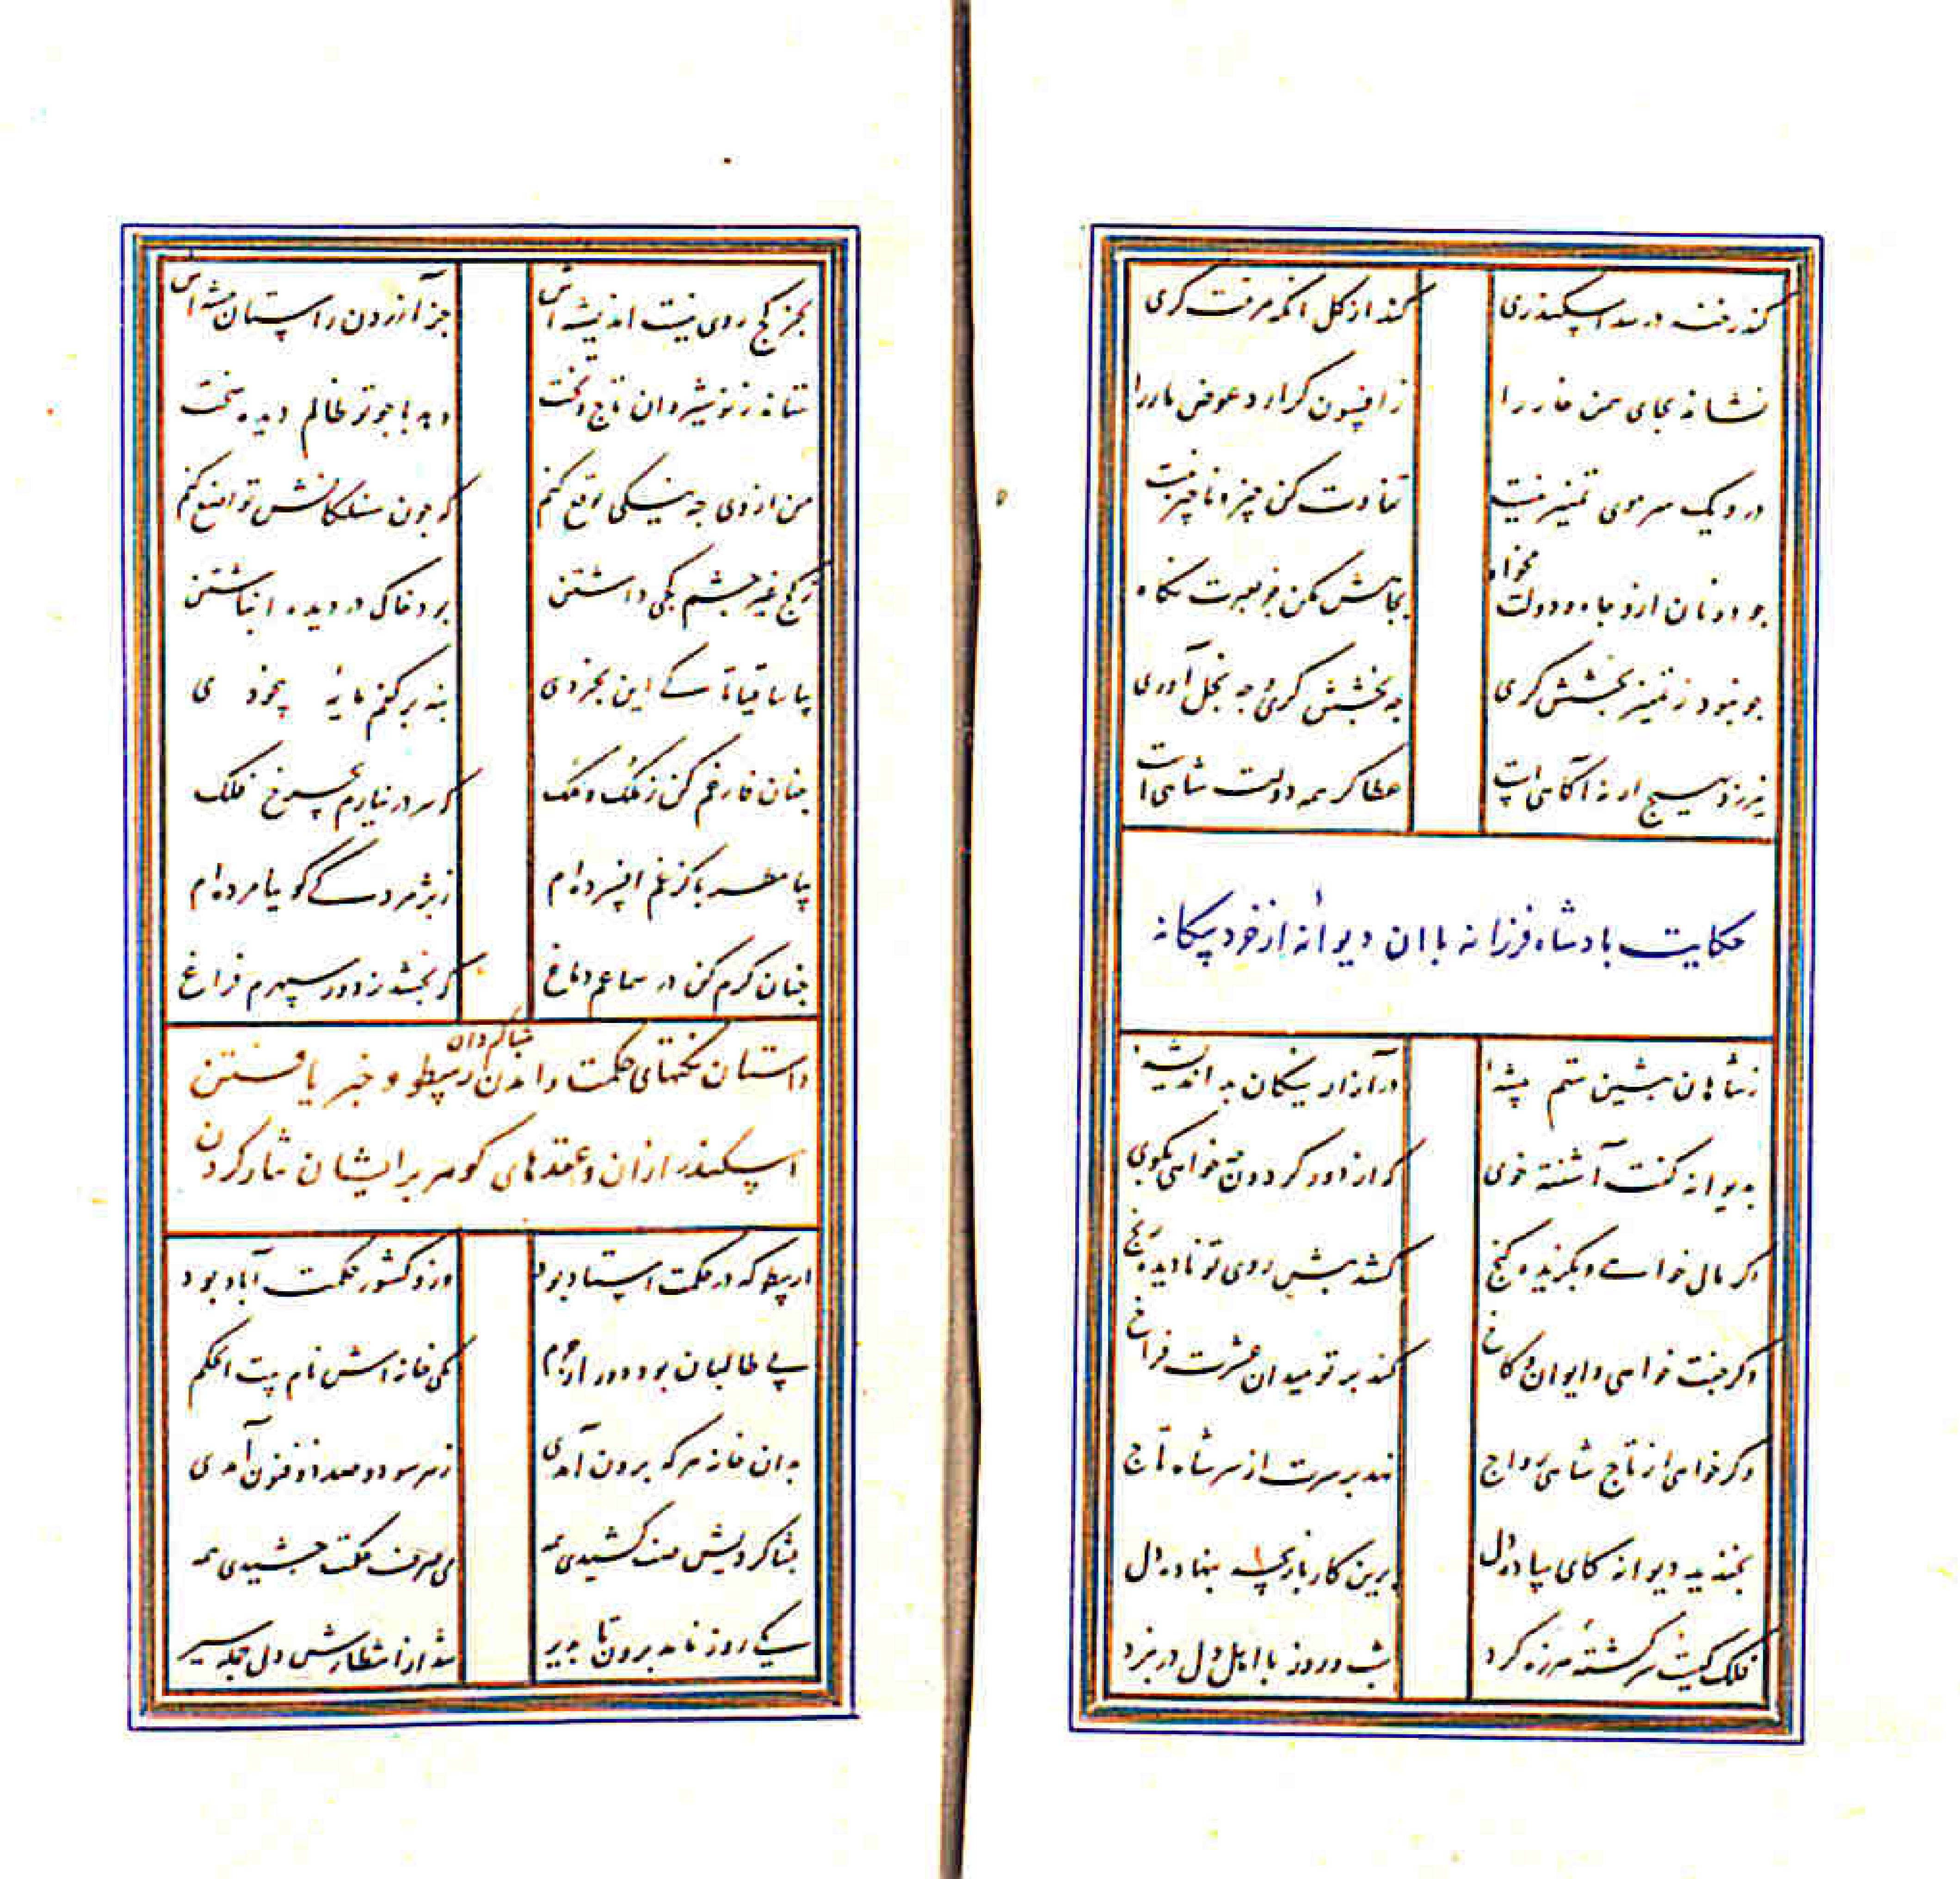 کند رخنه در سد اسکندری کند از گل آنگه مرمت گری
نشاند بجای سمن خار را ز افسون گر آرد عوض مار را
درو یک سر موی تمییز نیست تفاوت کن چیز و ناچیز نیست
چو دونان ازو جاه و دولت مخواه بجاهش مکن جز بعبرت نگاه
چو نبود ز تمییز بخشش گری چه بخشش گری چه بخل آوری
نیرزد بهیچ ار نه آگاهی است عطا گر همه دولت شاهی است
حکایت بادشاه فرزانه با ان دیوانه از خرد بیگانه
ز شاهان پیشین ستم پیشه در آزار نیکان بد اندیشه
بدیوانه گفت آشفته خوی که از دور گردون چه خواهی بگوی
اگر مال خواهی و بگزیده گنج کشد پیش روی تو نادیده رنج
وگر جفت خواهی و ایوان و کاخ کند بر تو میدان عشرت فراخ
وگر خواهی از تاج شاهی رواج نهد بر سرت از سر شاه تاج
بخندید دیوانه کای ساده دل برین کار بازیچه بنهاده دل
فلک کیست سرگشته هرزه گرد شب و روز با اهل دل در نبرد
بجز کج روی نیست اندیشه‌اش جز آزردن راستان پیشه‌اش
ستاند ز نوشیروان تاج و تخت دهد با چو تو ظالم دیده سخت
من از وی چه نیکی توقع کنم که چون سفلگانش تواضع کنم
ز کج غیر چشم کجی داشتن بود خاک در دیده انباشتن
بیا ساقیا تا کے این بخردی بنه بر کفم مایه بیخودی
چنان فارغم کن ز ملک و ملک که سر در نیارم بچرخ فلک
بیا مطربا کز غم افسرده‌ام ز پژمردگے گوییا مرده‌ام
چنان گرم کن در سماعم دماغ که بخشد ز دور سپهرم فراغ
داستان نکتهای حکمت راندن شاگردان ارسطو و خبر یافتن
اسکندر از ان و عقدهای گوهر بر ایشان نثار کردن
ارسطو که در حکمت استاد بود وزو کشور حکمت آباد بود
پی طالبان بود دور از حرم یکی خانه‌اش نام بیت الحکم
بدان خانه هر گه برون آمدی ز هر سو دو صد ذو فنون آمدی
بشاگردیش صف کشیدی همه می صرف حکمت چشیدی همه
یکے روز نامد برون تا بدیر شد از انتظارش دل جمله سیر